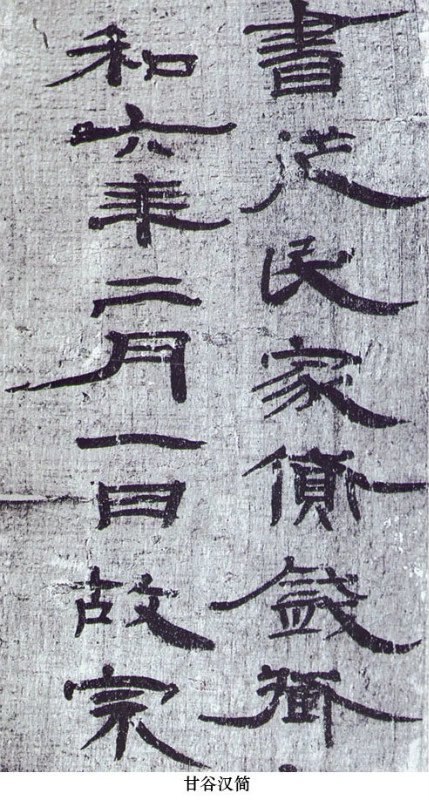 書 民家
和六年二月一日故宗
甘谷汉简